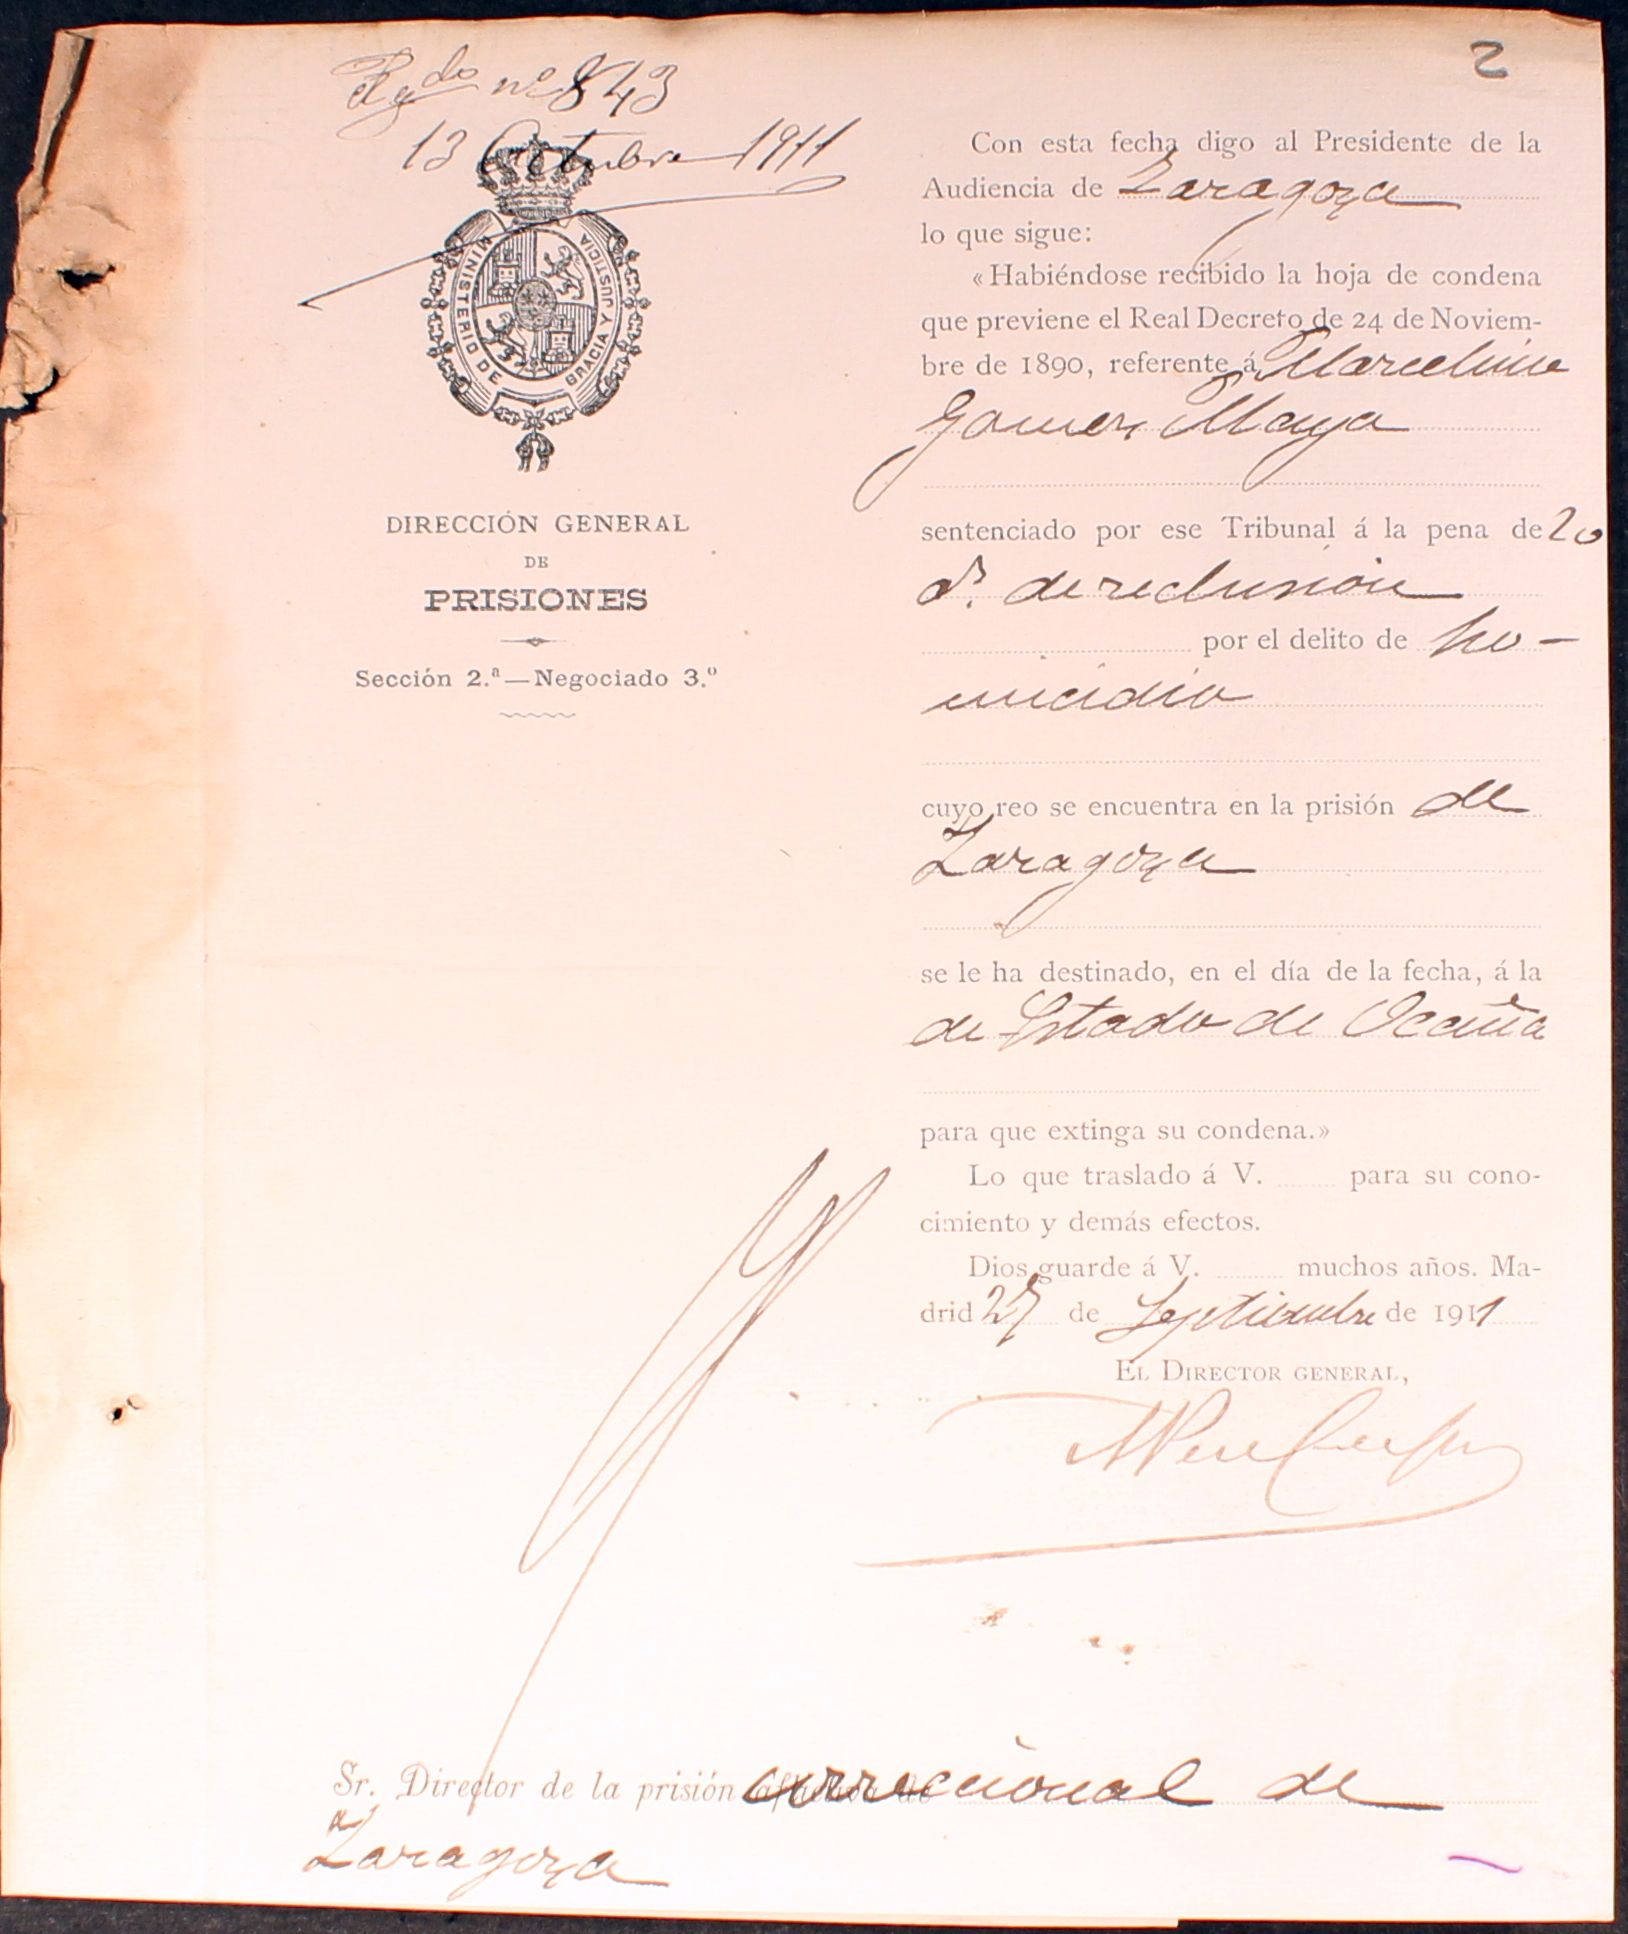 2
Rgdo nº 843
13 Octubre 1911
MINISTERIO DE GRACIA Y JUSTICIA
DIRECCIÓN GENERAL
DE
PRISIONES
Sección 2.ª—Negociado 3.º
Con esta fecha digo al Presidente de la
Audiencia de Zaragoza
lo que sigue:
«Habiéndose recibido la hoja de condena
que previene el Real Decreto de 24 de Noviem-
bre de 1890, referente á Marcelino
Gomez Maya
sentenciado por ese Tribunal á la pena de 20
a.s de reclusión
por el delito de ho-
micidio
cuyo reo se encuentra en la prisión de
Zaragoza
se le ha destinado, en el día de la fecha, á la
de Estado de Ocaña
para que extinga su condena.»
Lo que traslado á V. para su cono-
cimiento y demás efectos.
Dios guarde á V. muchos años. Ma-
drid 27 de Septiembre de 1911
EL DIRECTOR GENERAL,
Sr. Director de la prisión correccional de
Zaragoza